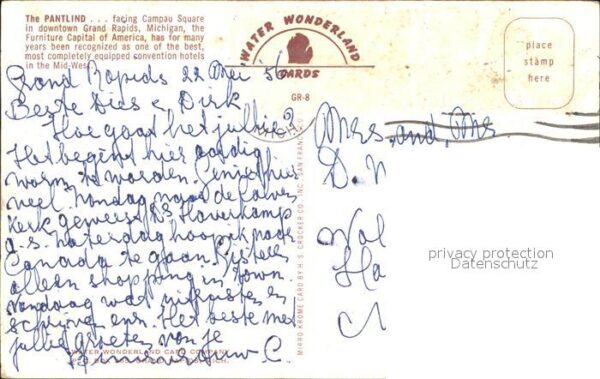 The PANTLIND . . . facing Campau Square
in downtown Grand Rapids, Michigan, the
Furniture Capital of America, has for many
years been recognized as one of the best,
most completely equipped convention hotels
in the Mid-West.
WATER WONDERLAND
CARDS
GR-8
place
stamp
here
Grand Rapids 22 Mei '56
Beste Dies & Dirk
Hoe gaat het jullie?
Het begint hier aardig
warm te worden. Geniet hier
veel. Zondag naar de
kerk geweest Ds Haverkamp
a.s. zaterdag hoop ik naar
Canada te gaan. Gisteren
alleen shopping in town.
Vandaag wat uitrusten en
schrijven enz. Het beste met
jullie groeten van je
C.
Mrs. and Mr.
D.
Wal
Ha
privacy protection
Datenschutz
MIRRO KROME CARD BY H. S. CROCKER CO., INC., SAN FRANCISCO
WATER WONDERLAND CARD COMPANY